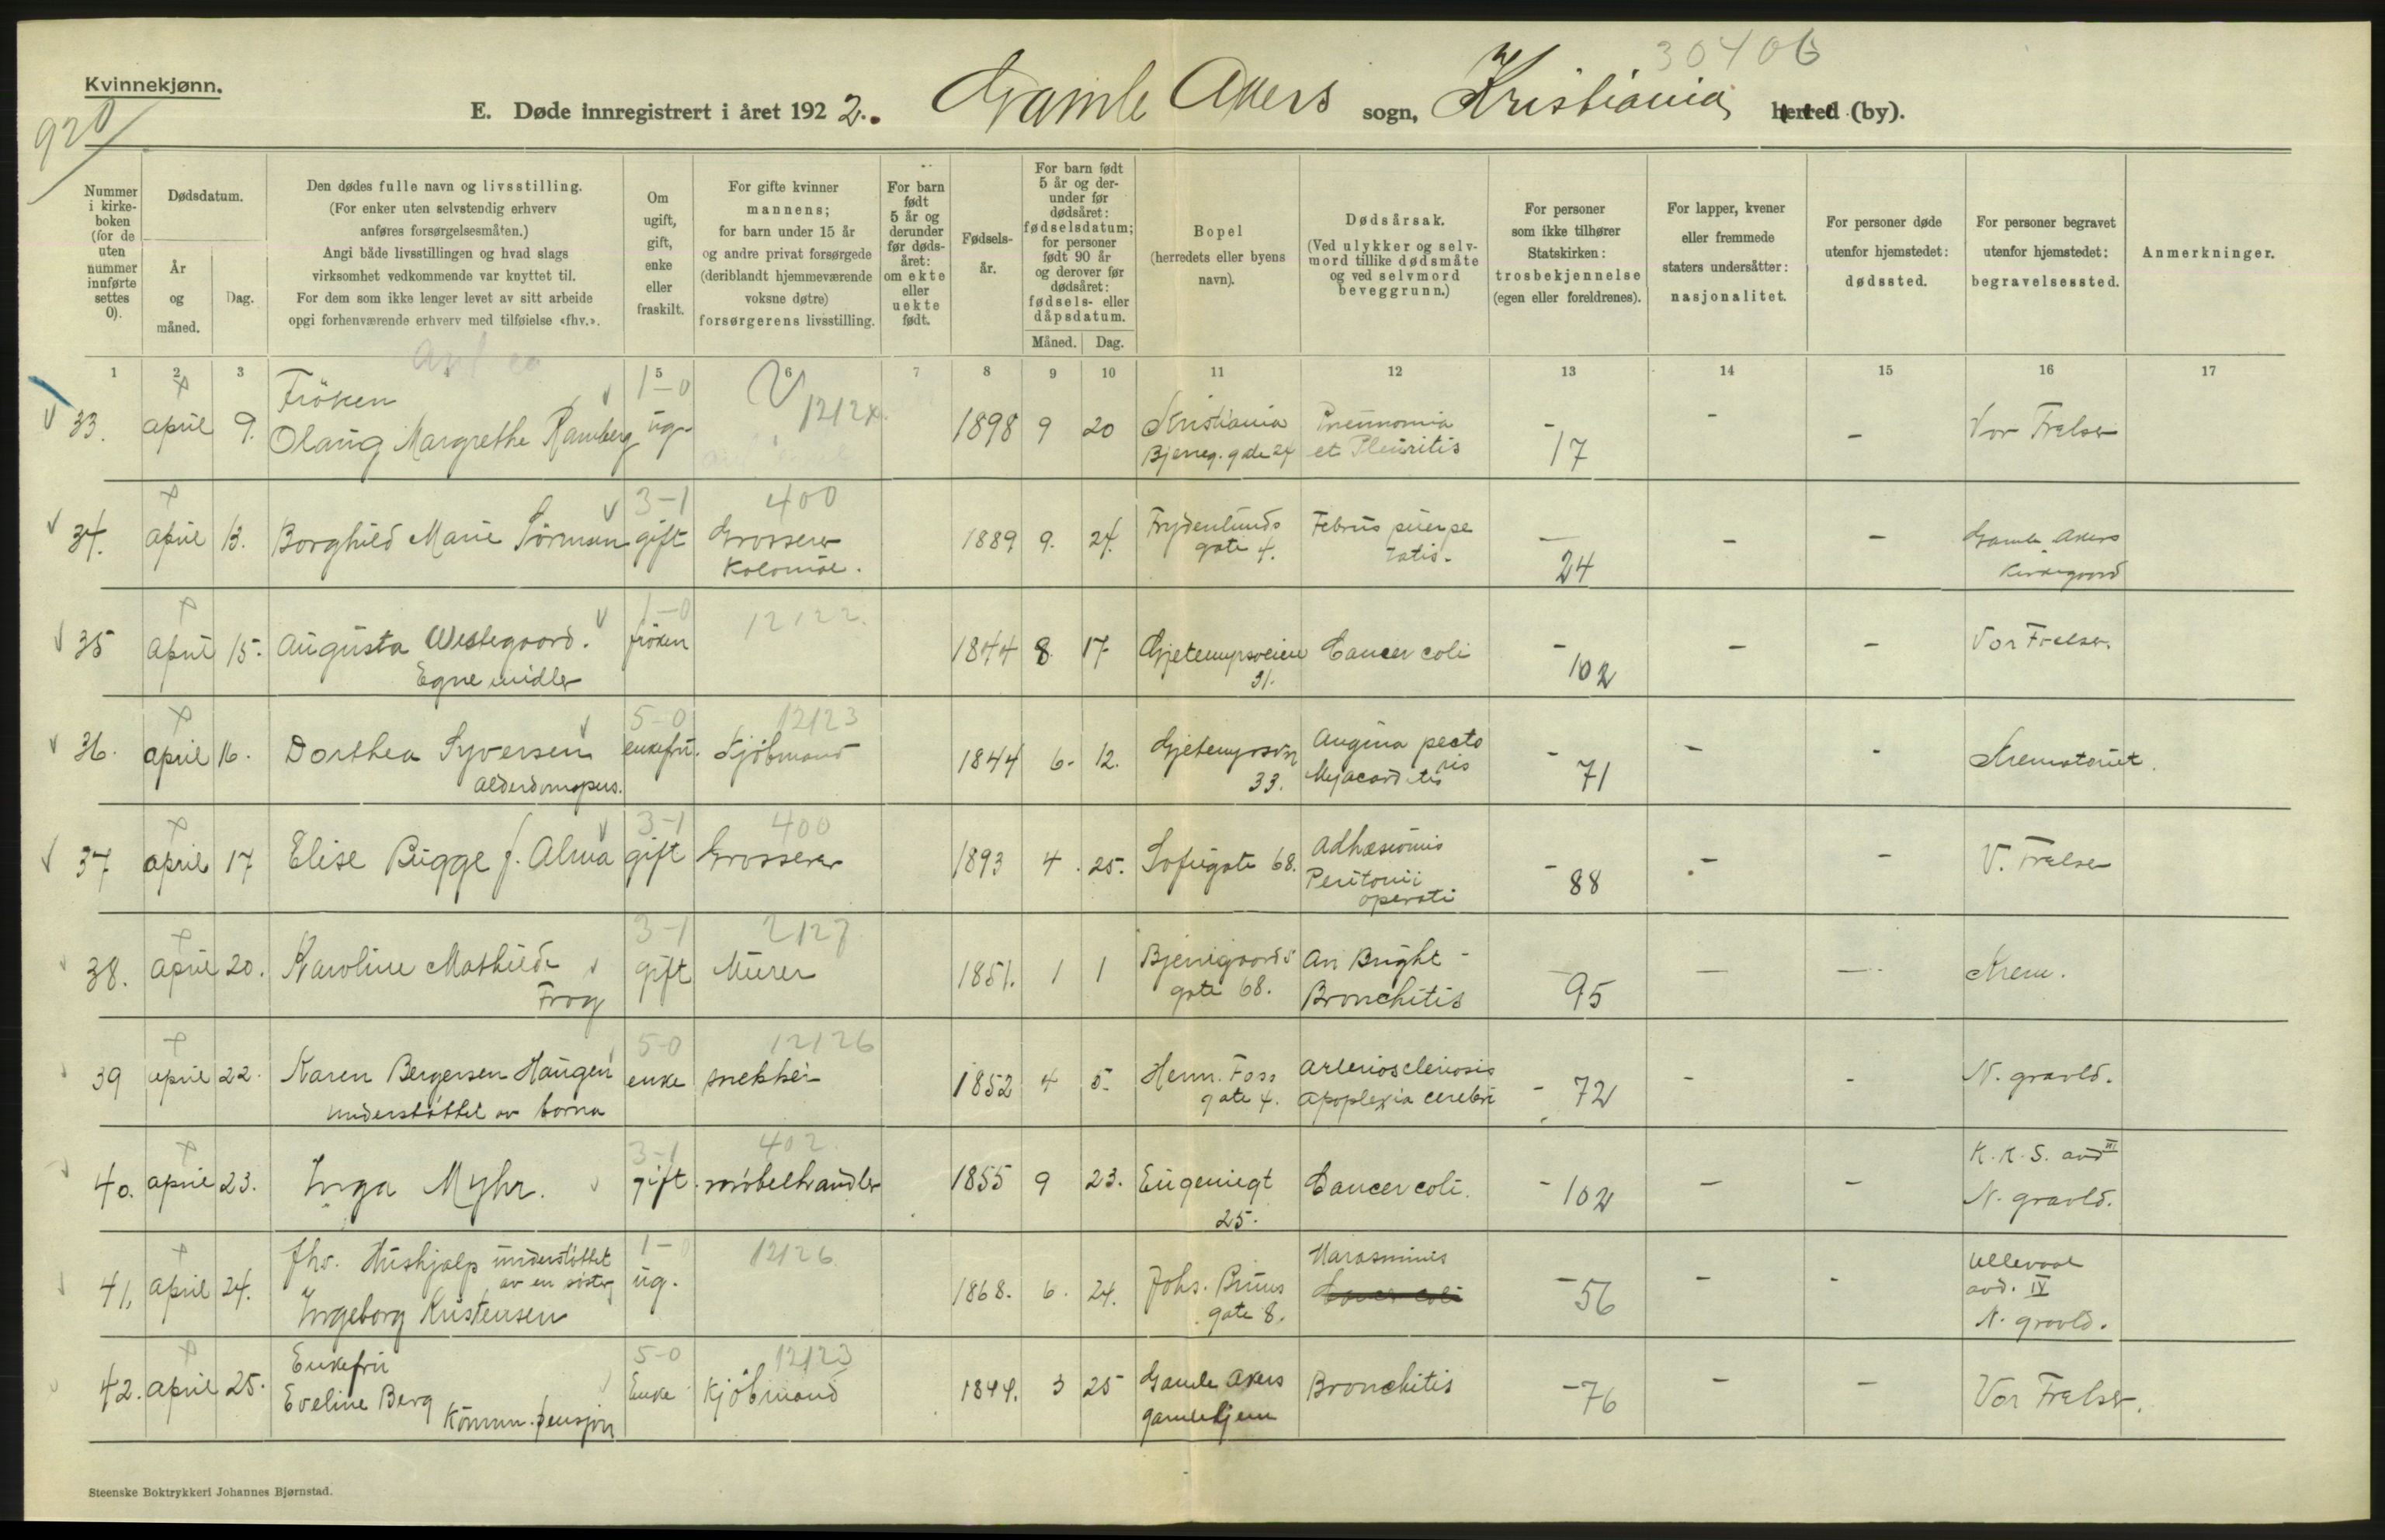 30406
Kvinnekjønn.
920
E. Døde innregistrert i året 1922. Gamle Akers sogn, Kristiania herred (by).
Nummer i kirkeboken (for de uten nummer innførte settes 0).
Dødsdatum.
År og måned.
Dag.
Den dødes fulle navn og livsstilling.
(For enker uten selvstendig erhverv anføres forsørgelsesmåten.)
Angi både livsstillingen og hvad slags virksomhet vedkommende var knyttet til.
For dem som ikke lenger levet av sitt arbeide opgi forhenværende erhverv med tilføielse «fhv.».
Om ugift, gift, enke eller fraskilt.
For gifte kvinner mannens; for barn under 15 år og andre privat forsørgede (deriblandt hjemmeværende voksne døtre) forsørgerens livsstilling.
For barn født 5 år og derunder før dødsåret: om ekte eller uekte født.
Fødselsår.
For barn født 5 år og derunder før dødsåret: fødselsdatum; for personer født 90 år og derover før dødsåret: fødsels- eller dåpsdatum.
Måned. Dag.
Bopel (herredets eller byens navn).
Dødsårsak. (Ved ulykker og selvmord tillike dødsmåte og ved selvmord beveggrunn.)
For personer som ikke tilhører Statskirken: trosbekjennelse (egen eller foreldrenes).
For lapper, kvener eller fremmede staters undersåtter: nasjonalitet.
For personer døde utenfor hjemstedet: dødssted.
For personer begravet utenfor hjemstedet: begravelsessted.
Anmerkninger.
1 2 3 5 6 7 8 9 10 11 12 13 14 15 16 17
33. april 9. Frøken Olaug Margrethe Ramberg 1-0 ug. 1898 9 20 Kristiania Bjerreg. gate 24 Pneumonia et Pleuritis - 17 - - Vor Frelser
34. april 13. Borghild Marie Sörensen 3-1 gift 400 Grosserer Kolonial. 1889 9. 24. Frydenlunds gate 4. Febris puerperalis. - 24 - - Gamle Akers Kirkegaard
35 april 15. Augusta Westegaard. Egne midler 1-0 frøken 12122. 1844 8 17 Gjetemyrsveien 31. Cancer coli - 102 - - Vor Frelser.
36. april 16. Dorthea Syversen Alderdomspens. 5-0 enkefru. 12123 Kjöbmand 1844 6. 12. Gjetemyrsvn 33. Angina pectoris Myocarditis - 71 - - Krematoriet.
37 april 17 Elise Bugge f. Alma 3-1 gift 400 Grosserer 1893 4. 25. Sofiegate 68. Adhæsionis Peritonii operati - 88 - - V. Frelser
38. april 20. Karoline Mathilde Frog 3-1 gift 2127 Murer 1851. 1 1 Bjerregaards gate 68. Bright - Bronchitis - 95 - - Krem.
39 april 22. Karen Bergersen Haugen understøttet av barna 5-0 enke 12126 snekker 1852 4 5. Herm. Foss gate 4. Arteriosclerosis Apoplexia cerebri - 72 - - N. gravld.
40. april 23. Inga Myhr. 3-1 gift. 402. møbelhandler 1855 9 23. Eugeniegt 25. Cancer coli. - 102 - - K.K.S. avd VII N. gravld.
41. april 24. fhv. Hushjelp understøttet av en søster Ingeborg Kristensen 1-0 ug. 12126 1868. 6. 24. Johs. Bruns gate 8. Marasmus Cancer coli - 56 - - Ullevaal avd. IV N. gravld.
42. april 25. Enkefru Eveline Berg Kommun. pensjon 5-0 Enke 12123 Kjöbmand 1844. 3 25 Gamle Akers gamlehjem Bronchitis - 76 - - Vor Frelser.
Steenske Boktrykkeri Johannes Bjørnstad.